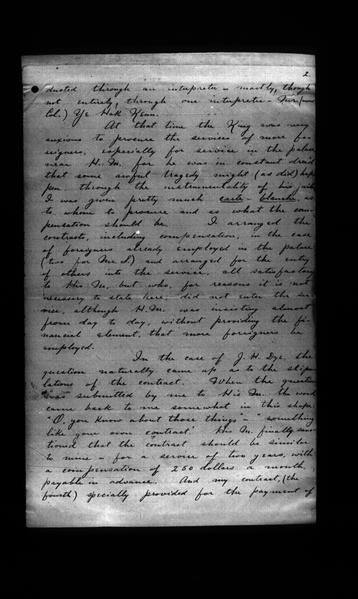 2
ducted through an interpreter - mostly, though
not entirely, through one interpreter - Mr. (now
Col.) Ye Hak Kiun.
At that time the King was very
anxious to procure the services of more fo-
reigners, especially for service in the palace
near H.M. for he was in constant dread
that some awful tragedy might (as did) hap-
pen through the instrumentality of his
I was given pretty much carte blanche as
to whom to procure and as what the com-
pensation should be. I arranged the
contracts, including compensation in the case
of foreigners already employed in the palace
(two for Mr. L) and arranged for the entry
of others into the service, all satisfactory
to His M. but who, for reasons it is not
necessary to state here, did not enter the ser-
vice, although H.M. was insisting almost
from day to day, without providing the fi-
nancial element, that more foreigners be
employed.
In the case of J. H. Dye, the
question naturally came up as to the stipu-
lations of the contract. When the question
was submitted by me to His M. the word
came back to me somewhat in this shape:
"O, you know about those things" - "something
like your own contract." His M. finally men-
tioned that the contract should be similar
to mine - for a service of two years, with
a compensation of 250 dollars a month,
payable in advance. And my contract, (the
fourth) specially provided for the payment of